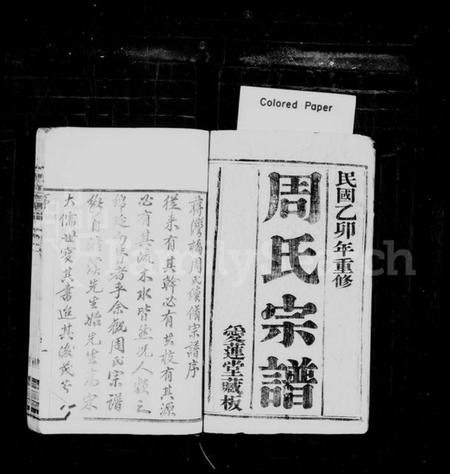 Colored Paper
民國乙卯年重修
周氏宗譜
愛蓮堂藏板
蔣灣橋周氏續修宗譜序
從來有其幹必有其枝有其源
必有其流木水皆然況人
者乎余觀周氏宗譜
先生始先生為宋
大儒世變其書進其後
序
FamilySearch